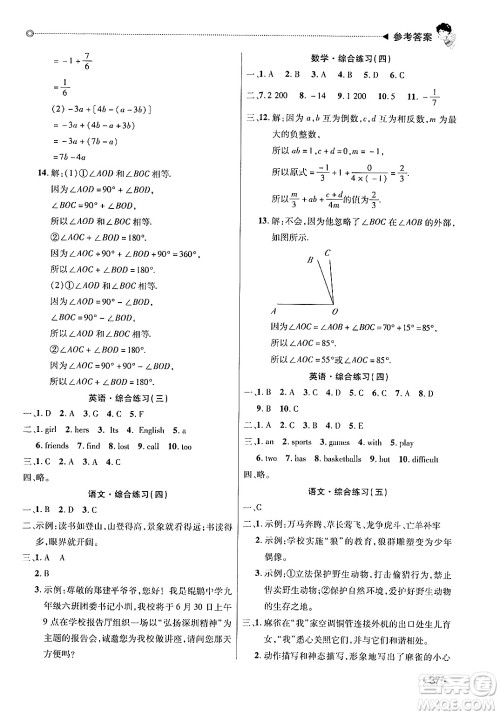 参考答案
= -1 + 7/6
= 1/6
(2) -3a + [4b - (a - 3b)]
= -3a + (4b - a + 3b)
= -3a + 4b - a + 3b
= 7b - 4a
14. 解: (1) ①∠AOD 和∠BOC 相等.
因为∠AOD = 90° + ∠BOD,
∠BOC = 90° + ∠BOD,
所以∠AOD 和∠BOC 相等.
②∠AOC + ∠BOD = 180°.
因为∠AOC + 90° + ∠BOD + 90° = 360°,
所以∠AOC + ∠BOD = 180°.
(2) ①∠AOD 和∠BOC 相等.
因为∠AOD = 90° - ∠BOD,
∠BOC = 90° - ∠BOD,
所以∠AOD 和∠BOC 相等.
②∠AOC + ∠BOD = 180°.
因为∠AOC = 90° + 90° - ∠BOD,
所以∠AOC + ∠BOD = 180°.
英语·综合练习(三)
一、1. D 2. A 3. G 4. C 5. F
二、1. girl 2. hers 3. Its 4. English 5. a
6. friends 7. find 8. lost 9. call 10. too
三、1. A 2. C 3. B 4. A 5. C
四、略。
语文·综合练习(四)
一、C
二、示例:读书如登山,山登得高,景象就看得远,
眼界就开阔。
三、1. A A
2. B
3. 示例:尊敬的郑建平爷爷,我是鲲鹏中学九
年级六班团委书记小圳,我校将于 6 月 30 日
9 点在学校报告厅组织一场以“弘扬深圳精神”为
主题的报告会,诚邀您为我校做讲座,您那天
有时间吗?
四、略。
数学·综合练习(四)
一、1. A 2. C 3. B 4. D 5. A 6. D
二、7. 2 200 8. -14 9. 1 200 10. 5 11. -1/7
三、12. 解:因为 a,b 互为倒数,c,d 互为相反数,m 是最
大的负整数,
所以 ab = 1,c + d = 0,m = -1.
所以原式 = -1/3 + 1 + 0/(4×(-1)) = 2/3.
所以 m/3 + ab + (c+d)/4m 的值为 2/3.
13. 解:不会,因为他忽略了∠BOC 在∠AOB 的外部,
如图所示.
C B
A O
因为∠AOB + ∠BOC = 70° + 15° = 85°,
所以∠AOC = 55°或∠AOC = 85°.
英语·综合练习(四)
一、1. D 2. A 3. C 4. A 5. D 6. B 7. D 8. B
9. B 10. C
二、1. an 2. sports 3. games 4. with 5. play
6. or 7. has 8. basketballs 9. but 10. difficult
三、1. B 2. A 3. D 4. C 5. C
四、略。
语文·综合练习(五)
一、C
二、示例:万马奔腾、草长莺飞、龙争虎斗、亡羊补牢
三、1. 示例:学校实施“狼”的教育,狼群雕塑变成了我们的
偶像。
2. 示例:①立法保护野生动物,打击偷猎行为;
②宣传保护野生动物的意义;③保护野生动物
的生存之地。
四、1. 麻雀在“我”家空调铜管连接处的墙洞里出生儿
女;“我”悉心关照它们,与它们和谐相处。
2. 动作描写和神态描写,形象地写出了麻雀的小心